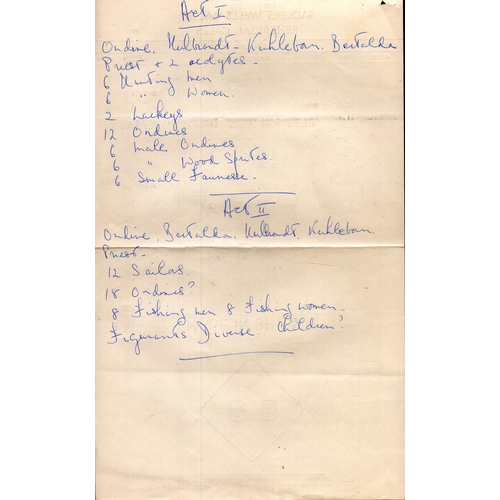 Act I
Ondine, Hulbrandt - Kuhleborn. Bertalda
Priest + 2 acolytes -
6 Hunting men
6 " Women.
2 Lackeys
12 Ondines
6 male Ondines
6 " Wood Sprites.
6 Small Faunesse -
Act II
Ondine, Bertalda, Hulbrandt, Kuhleborn
Priest -
12 Sailors
18 Ondines?
8 Fishing men 8 Fishing women -
Figurants Diverse Children?